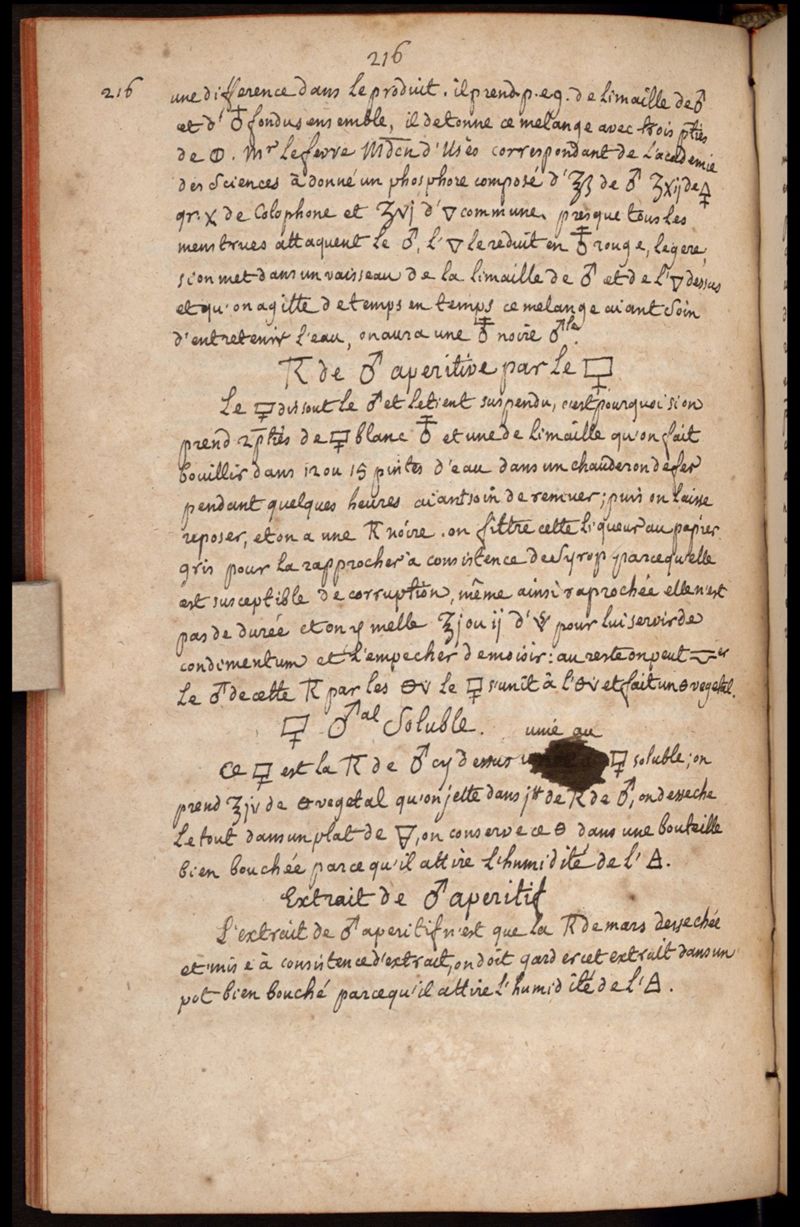 216
216 une difference dans le produit. il prend p. eg. de limaille de ♂
et d'♁ fondus ensemble, il detonne ce melange avec trois pties
de 🜕. Mr. Lefevre Mdcn d'Usès correspondant de l'academie
des Sciences à donné un phosphore composé d'ʒß de ♂ ʒxij de 🜍
gr. X de Colophone et ʒvj d'🜄 commune. presque tous les
menstrues attaquent le ♂, l'🜄 le reduit en rouge, legere,
si on met dans un vaisseau de la limaille de ♂ et de l'🜄 dessus
et qu'on agitte de temps en temps ce melange aiant soin
d'entretenir l'eau, on aura une noire ♂le.
de ♂ aperitive par le 🜿
Le 🜿 dissout le ♂ et le tient suspendu, c'est pourquoi si on
prend 2 pties de 🜿 blanc et une de limaille qu'on fait
bouillir dans 12 ou 15 pintes d'eau dans un chauderon de fer
pendant quelques heures aiant soin de remuer; puis on laisse
reposer, et on a une noire. on filtre cette liqueur au papier
gris pour la rapprocher à consistence de syrop parcequ'elle
est susceptible de corruption, même ainsi raprochée elle n'est
pas de durée et on y melle ʒj ou ij d' pour lui servir de
condimentum et l'empecher de moisir: au reste on peut er
Le ♂ de cette par les le 🜿 s'unit à l' et fait un 🜔 vegetal.
🜿 ♂al Soluble.
unie au
Ce 🜿 est la de ♂ cy dessus 🜿 soluble; on
prend ʒjv de 🜔 vegetal qu'on jette dans j℔ de de ♂, on desseche
le tout dans un plat de 🜃, on conserve ce 🜔 dans une bouteille
bien bouchée parce qu'il attire l'humidité de l'🜁.
Extrait de ♂ aperitif
L'extrait de ♂ aperitif n'est que la de mars dessechée
et mise à consistence d'extrait, on doit garder cet extrait dans un
pot bien bouché parcequ'il attire l'humidité de l'🜁.